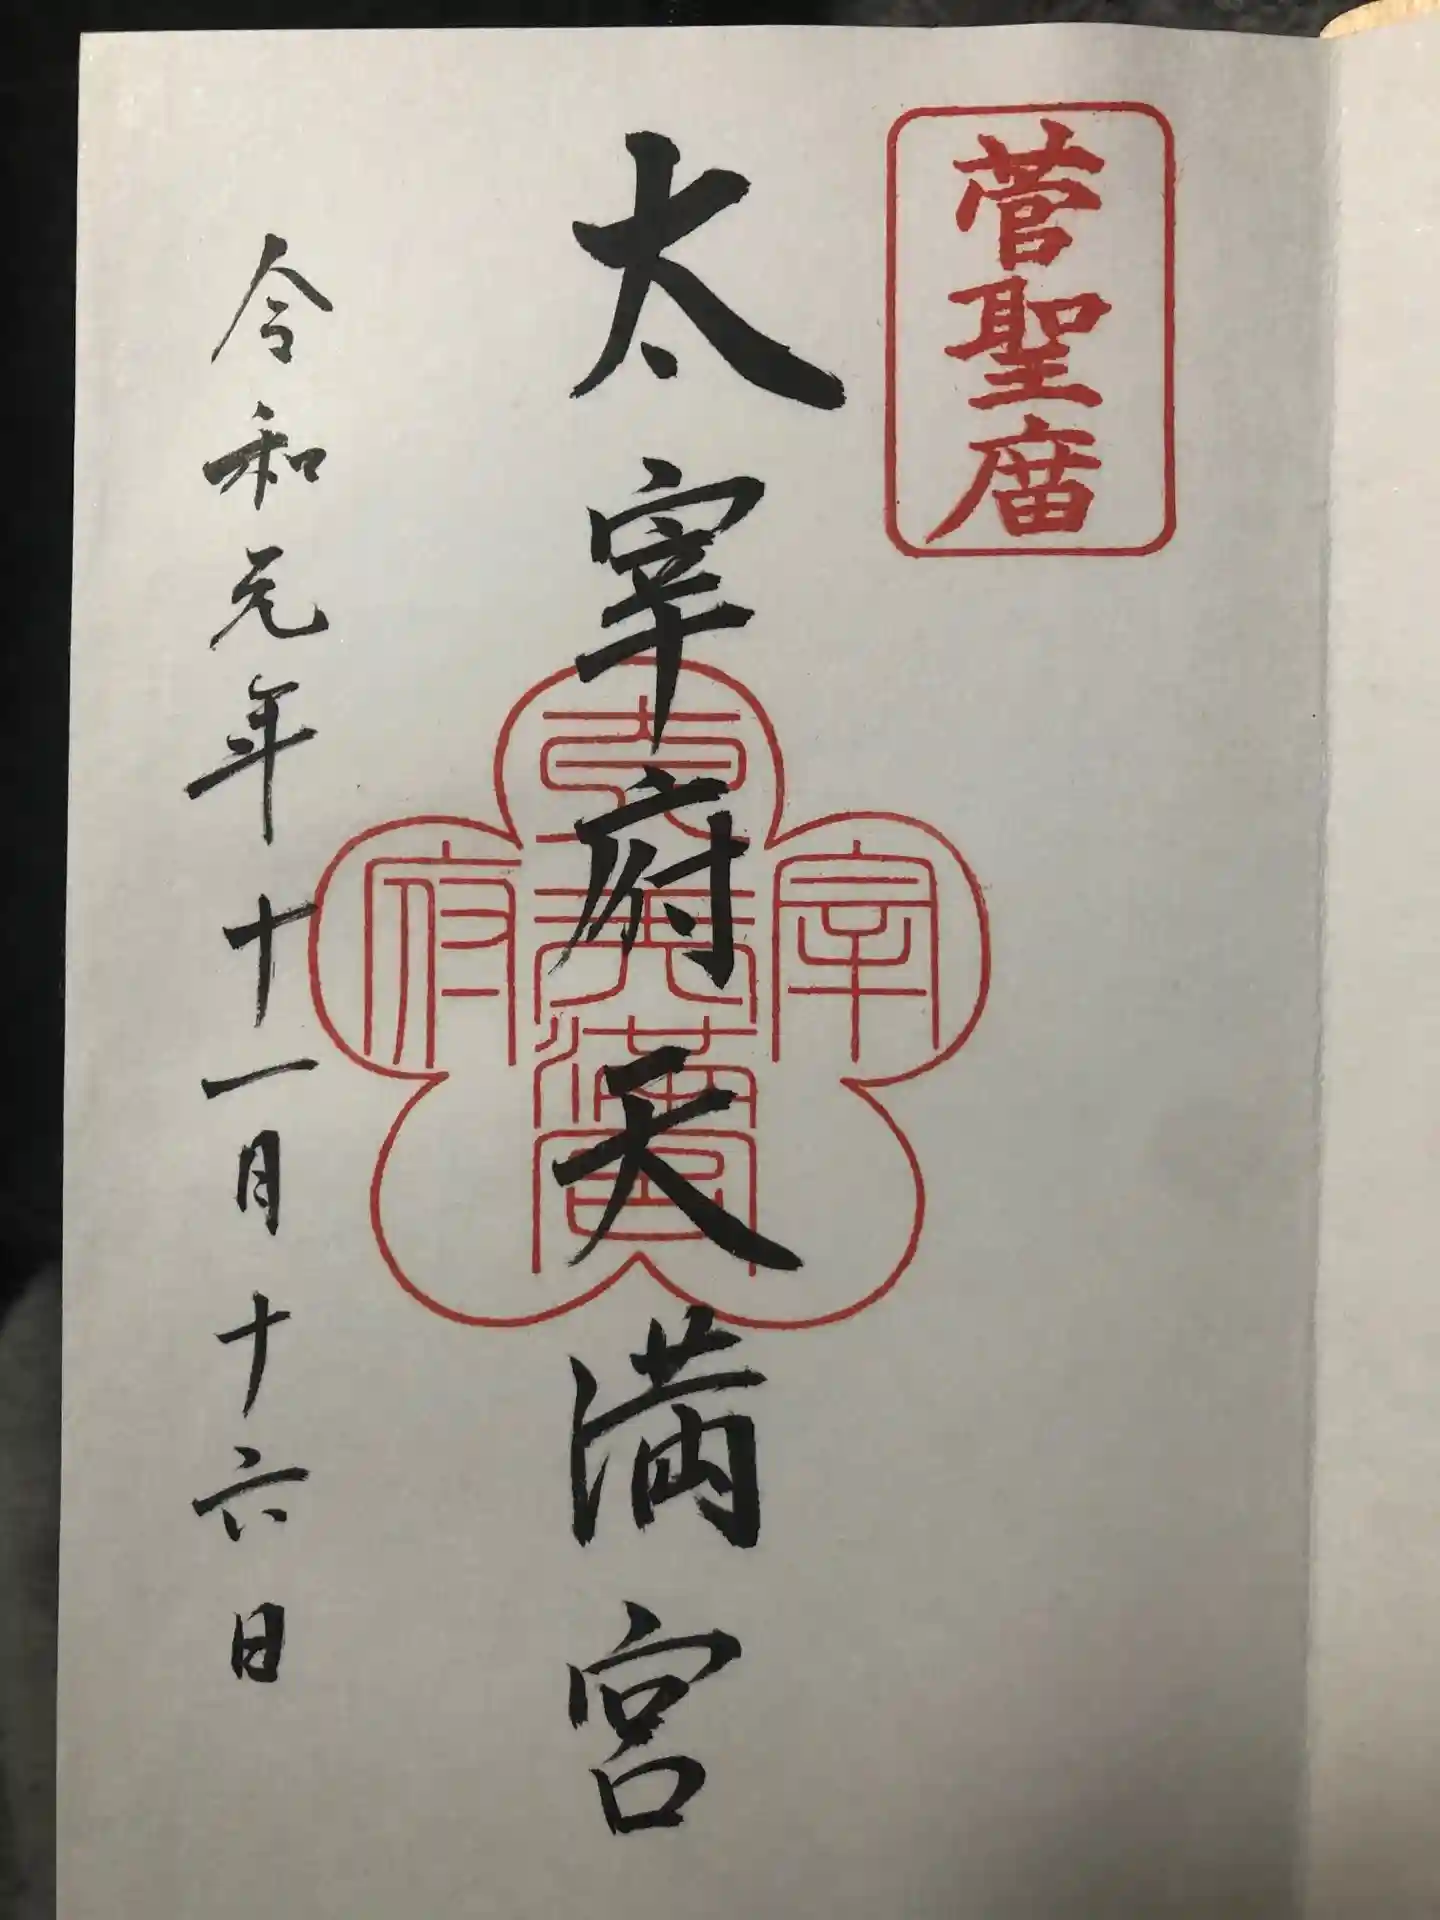 菅聖庿
太宰府天満宮
太
宰
府
天
満
宮
令和元年十一月十六日